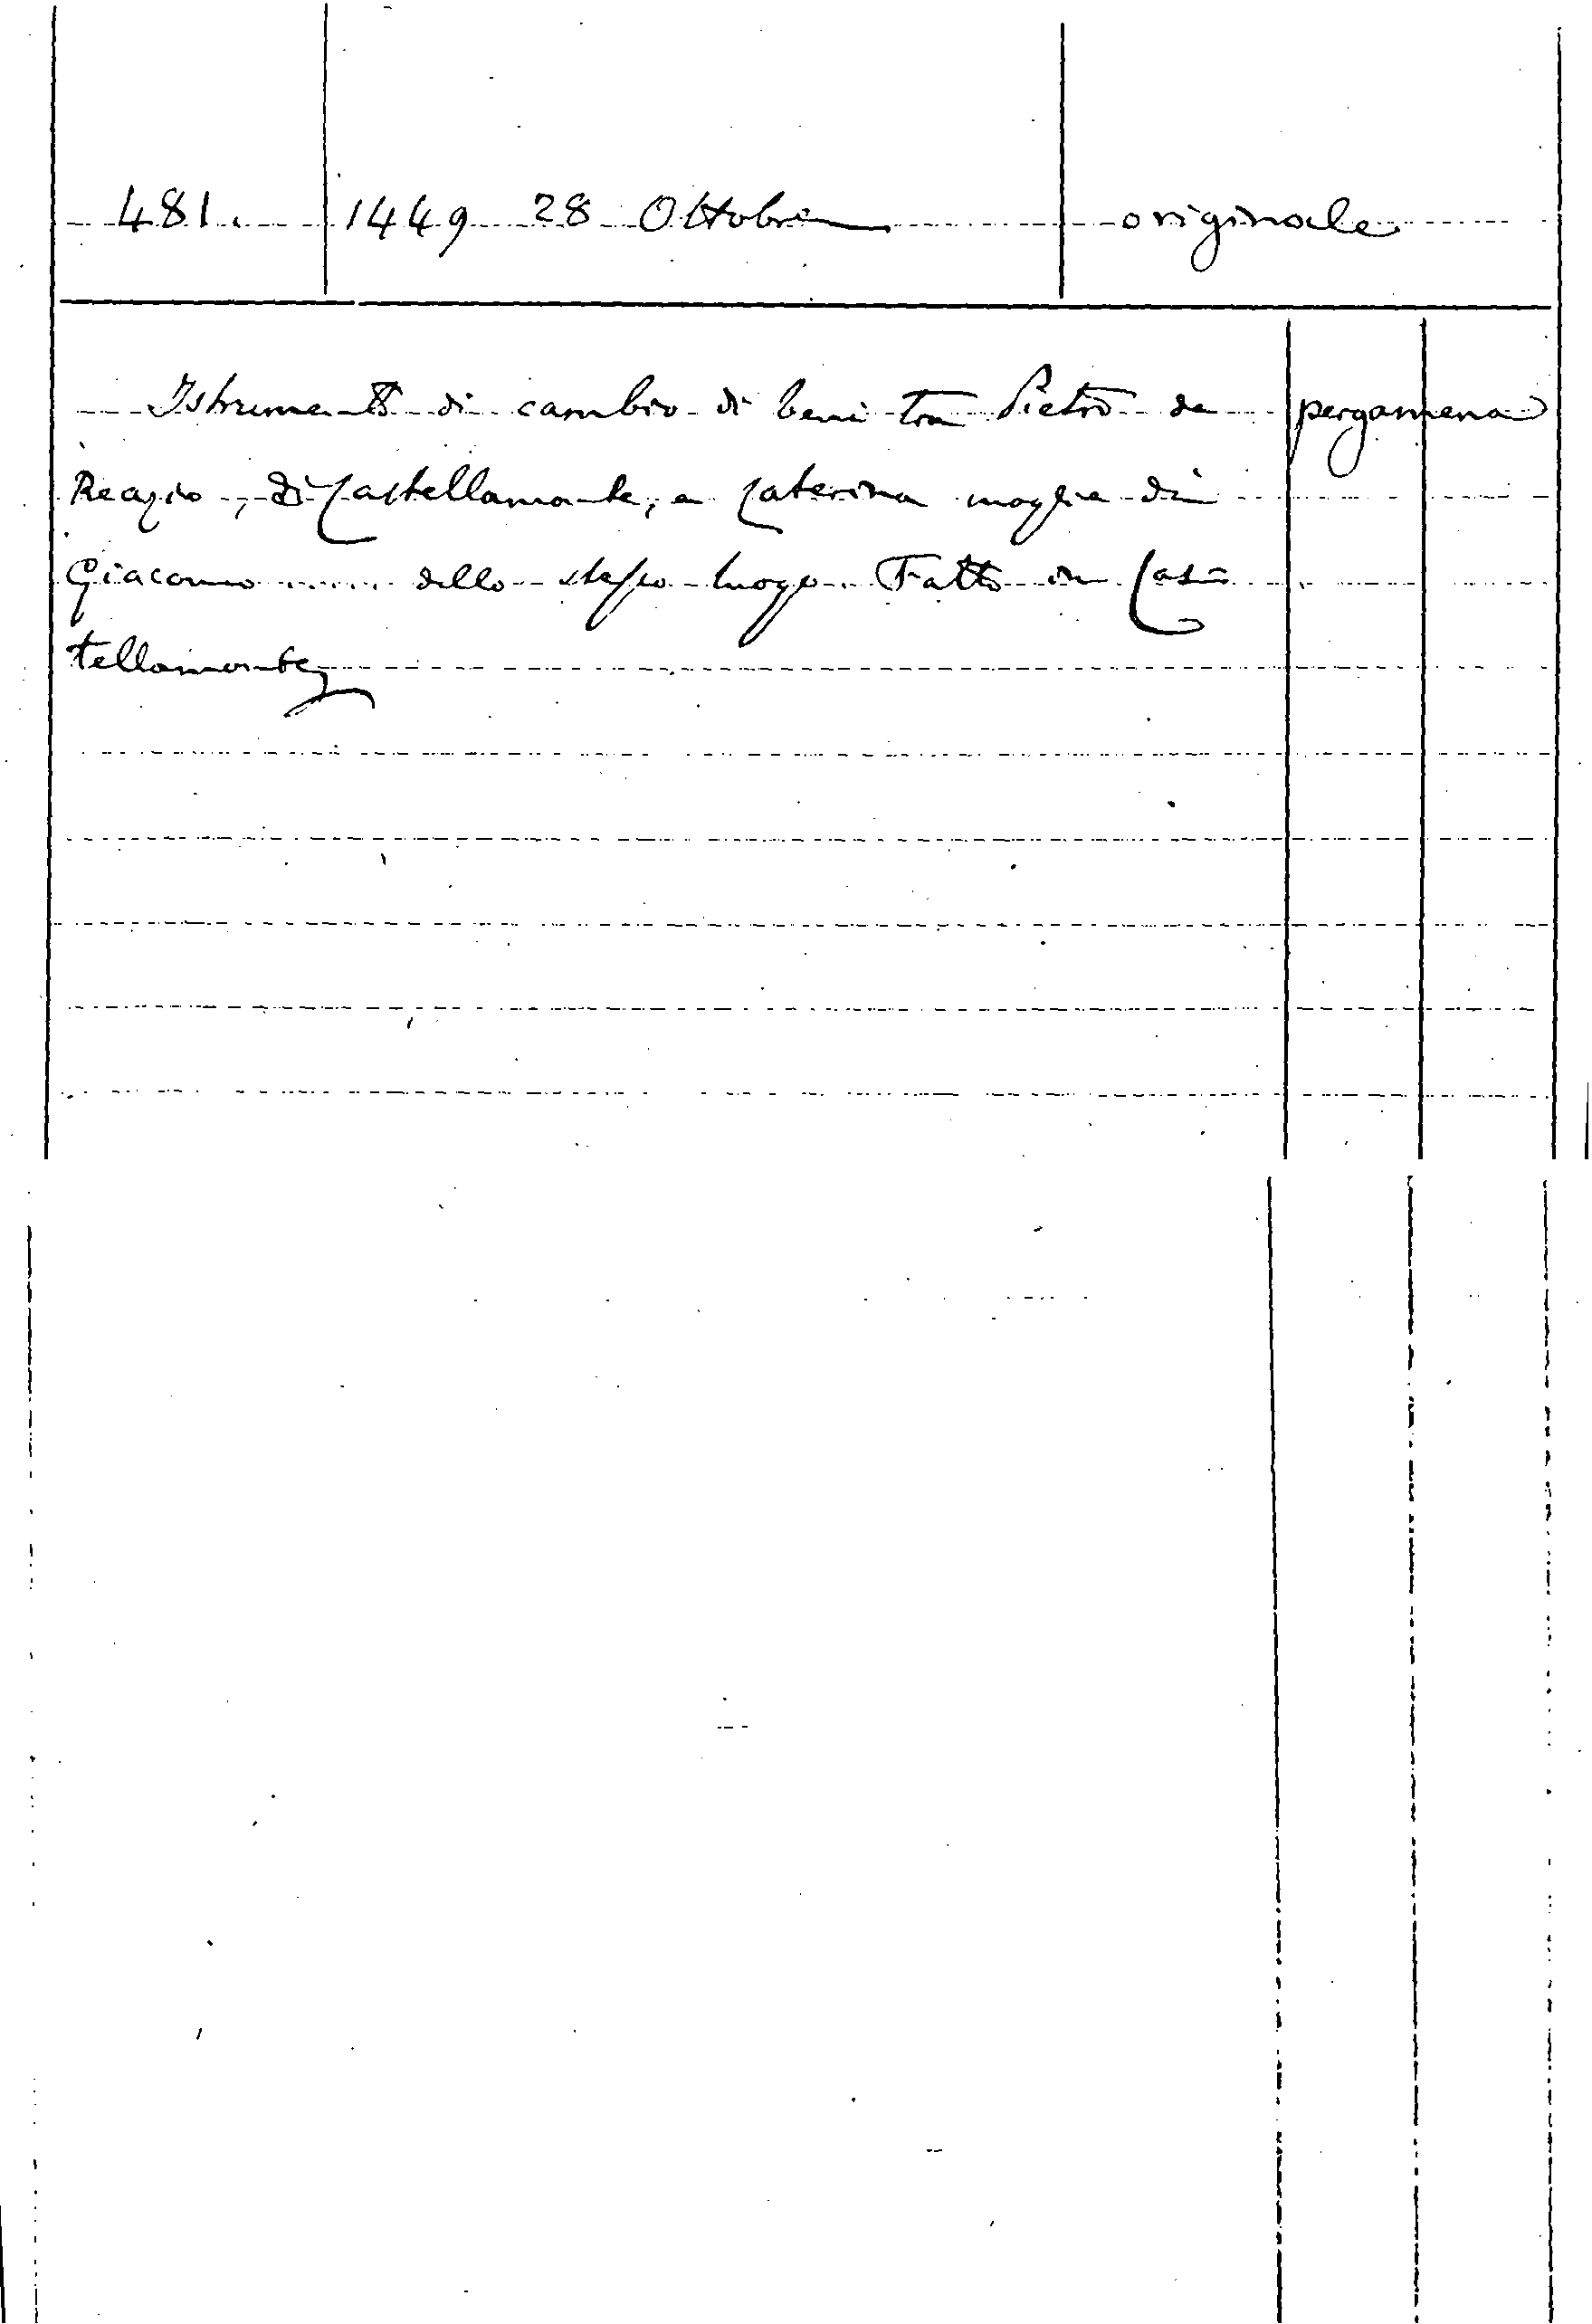 481. 1449 28 Ottobre originale
Istrumento di cambio di beni tra Pietro de pergamena
Reazio, di Castellamonte, e Caterina moglie di
Giacomo ...... dello stesso luogo. Fatto in Cas=
tellamonte